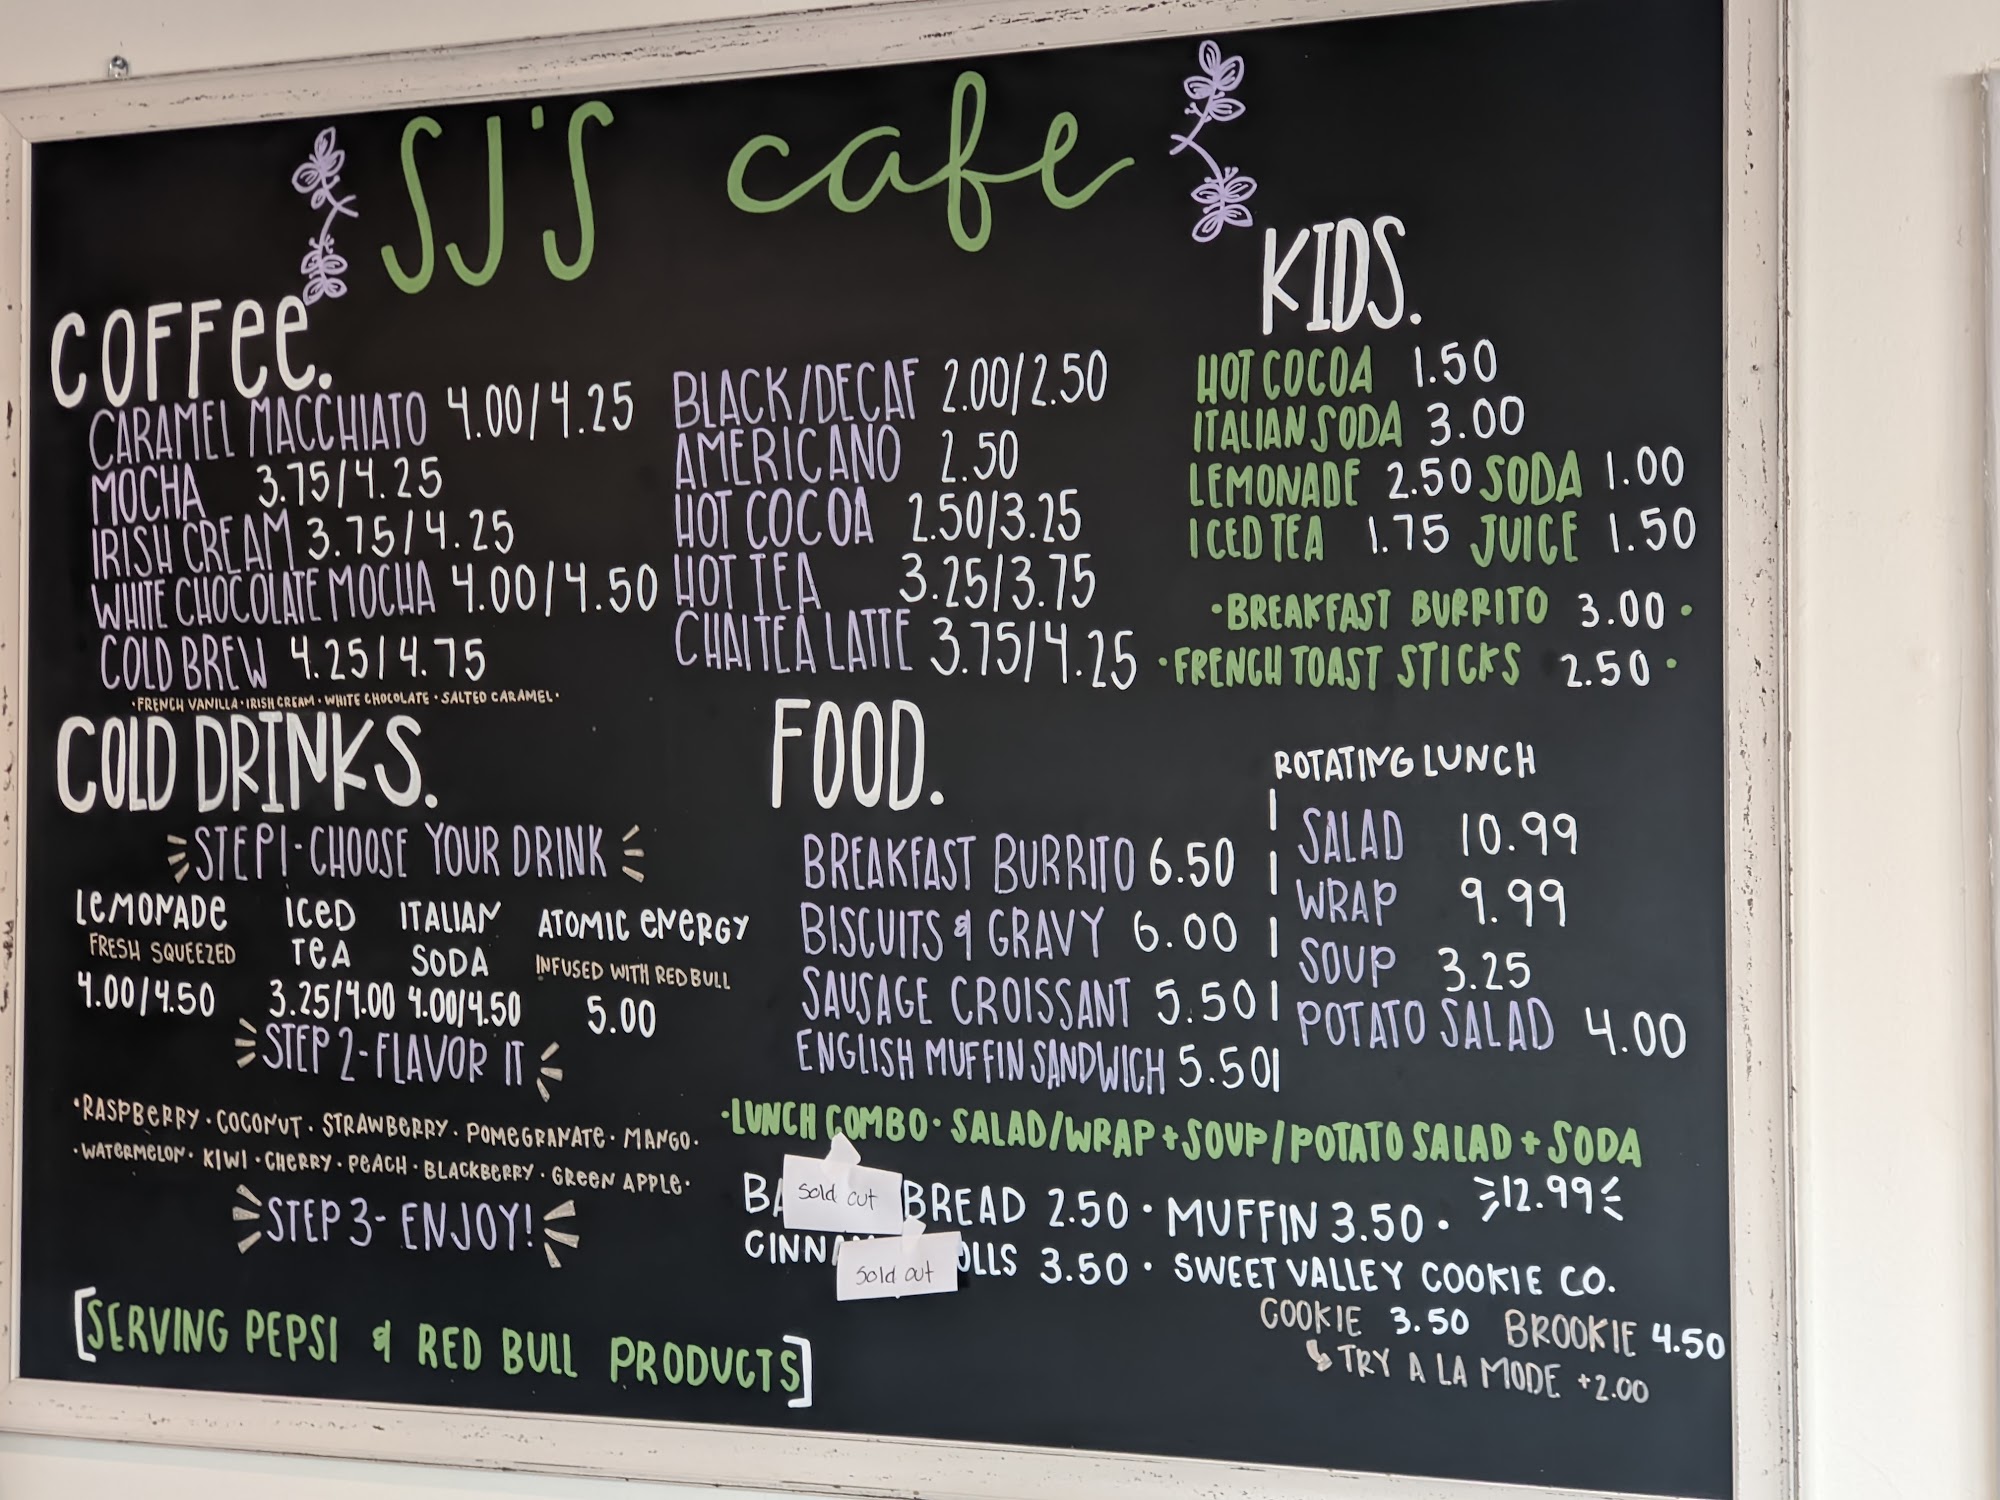 SJ'S cafe
COFFee.
CARAMEL MACCHIATO 4.00/4.25
MOCHA 3.75/4.25
IRISH CREAM 3.75/4.25
WHITE CHOCOLATE MOCHA 4.00/4.50
COLD BREW 4.25/4.75
·FRENCH VANILLA·IRISH CREAM·WHITE CHOCOLATE·SALTED CARAMEL·
BLACK/DECAF 2.00/2.50
AMERICANO 2.50
HOT COCOA 2.50/3.25
HOT TEA 3.25/3.75
CHAI TEA LATTE 3.75/4.25
KIDS.
HOT COCOA 1.50
ITALIAN SODA 3.00
LEMONADE 2.50 SODA 1.00
ICED TEA 1.75 JUICE 1.50
·BREAKFAST BURRITO 3.00·
·FRENCH TOAST STICKS 2.50·
COLD DRINKS.
STEP 1-CHOOSE YOUR DRINK
LeMONADe
FRESH SQUEEZED
4.00/4.50
ICeD
TeA
3.25/4.00
ITALIAN
SODA
4.00/4.50
ATOMIC eNeRGY
INFUSED WITH RED BULL
5.00
STEP 2-FLAVOR IT
·RASPBeRRY·COCONUT·STRAWBeRRY·POMeGRANATe·MANGO·
·WATeRMeLON·KIWI·CHeRRY·PeACH·BLACKBeRRY·GReeN APPLe·
STEP 3- ENJOY!
[SERVING PEPSI & RED BULL PRODUCTS]
FOOD.
BREAKFAST BURRITO 6.50
BISCUITS & GRAVY 6.00
SAUSAGE CROISSANT 5.50
ENGLISH MUFFIN SANDWICH 5.50
ROTATING LUNCH
SALAD 10.99
WRAP 9.99
SOUP 3.25
POTATO SALAD 4.00
·LUNCH COMBO· SALAD/WRAP + SOUP/POTATO SALAD + SODA
12.99
BA Sold out BREAD 2.50 · MUFFIN 3.50 ·
CINN Sold out OLLS 3.50 · SWEET VALLEY COOKIE CO.
COOKIE 3.50 BROOKIE 4.50
TRY A LA MODE +2.00